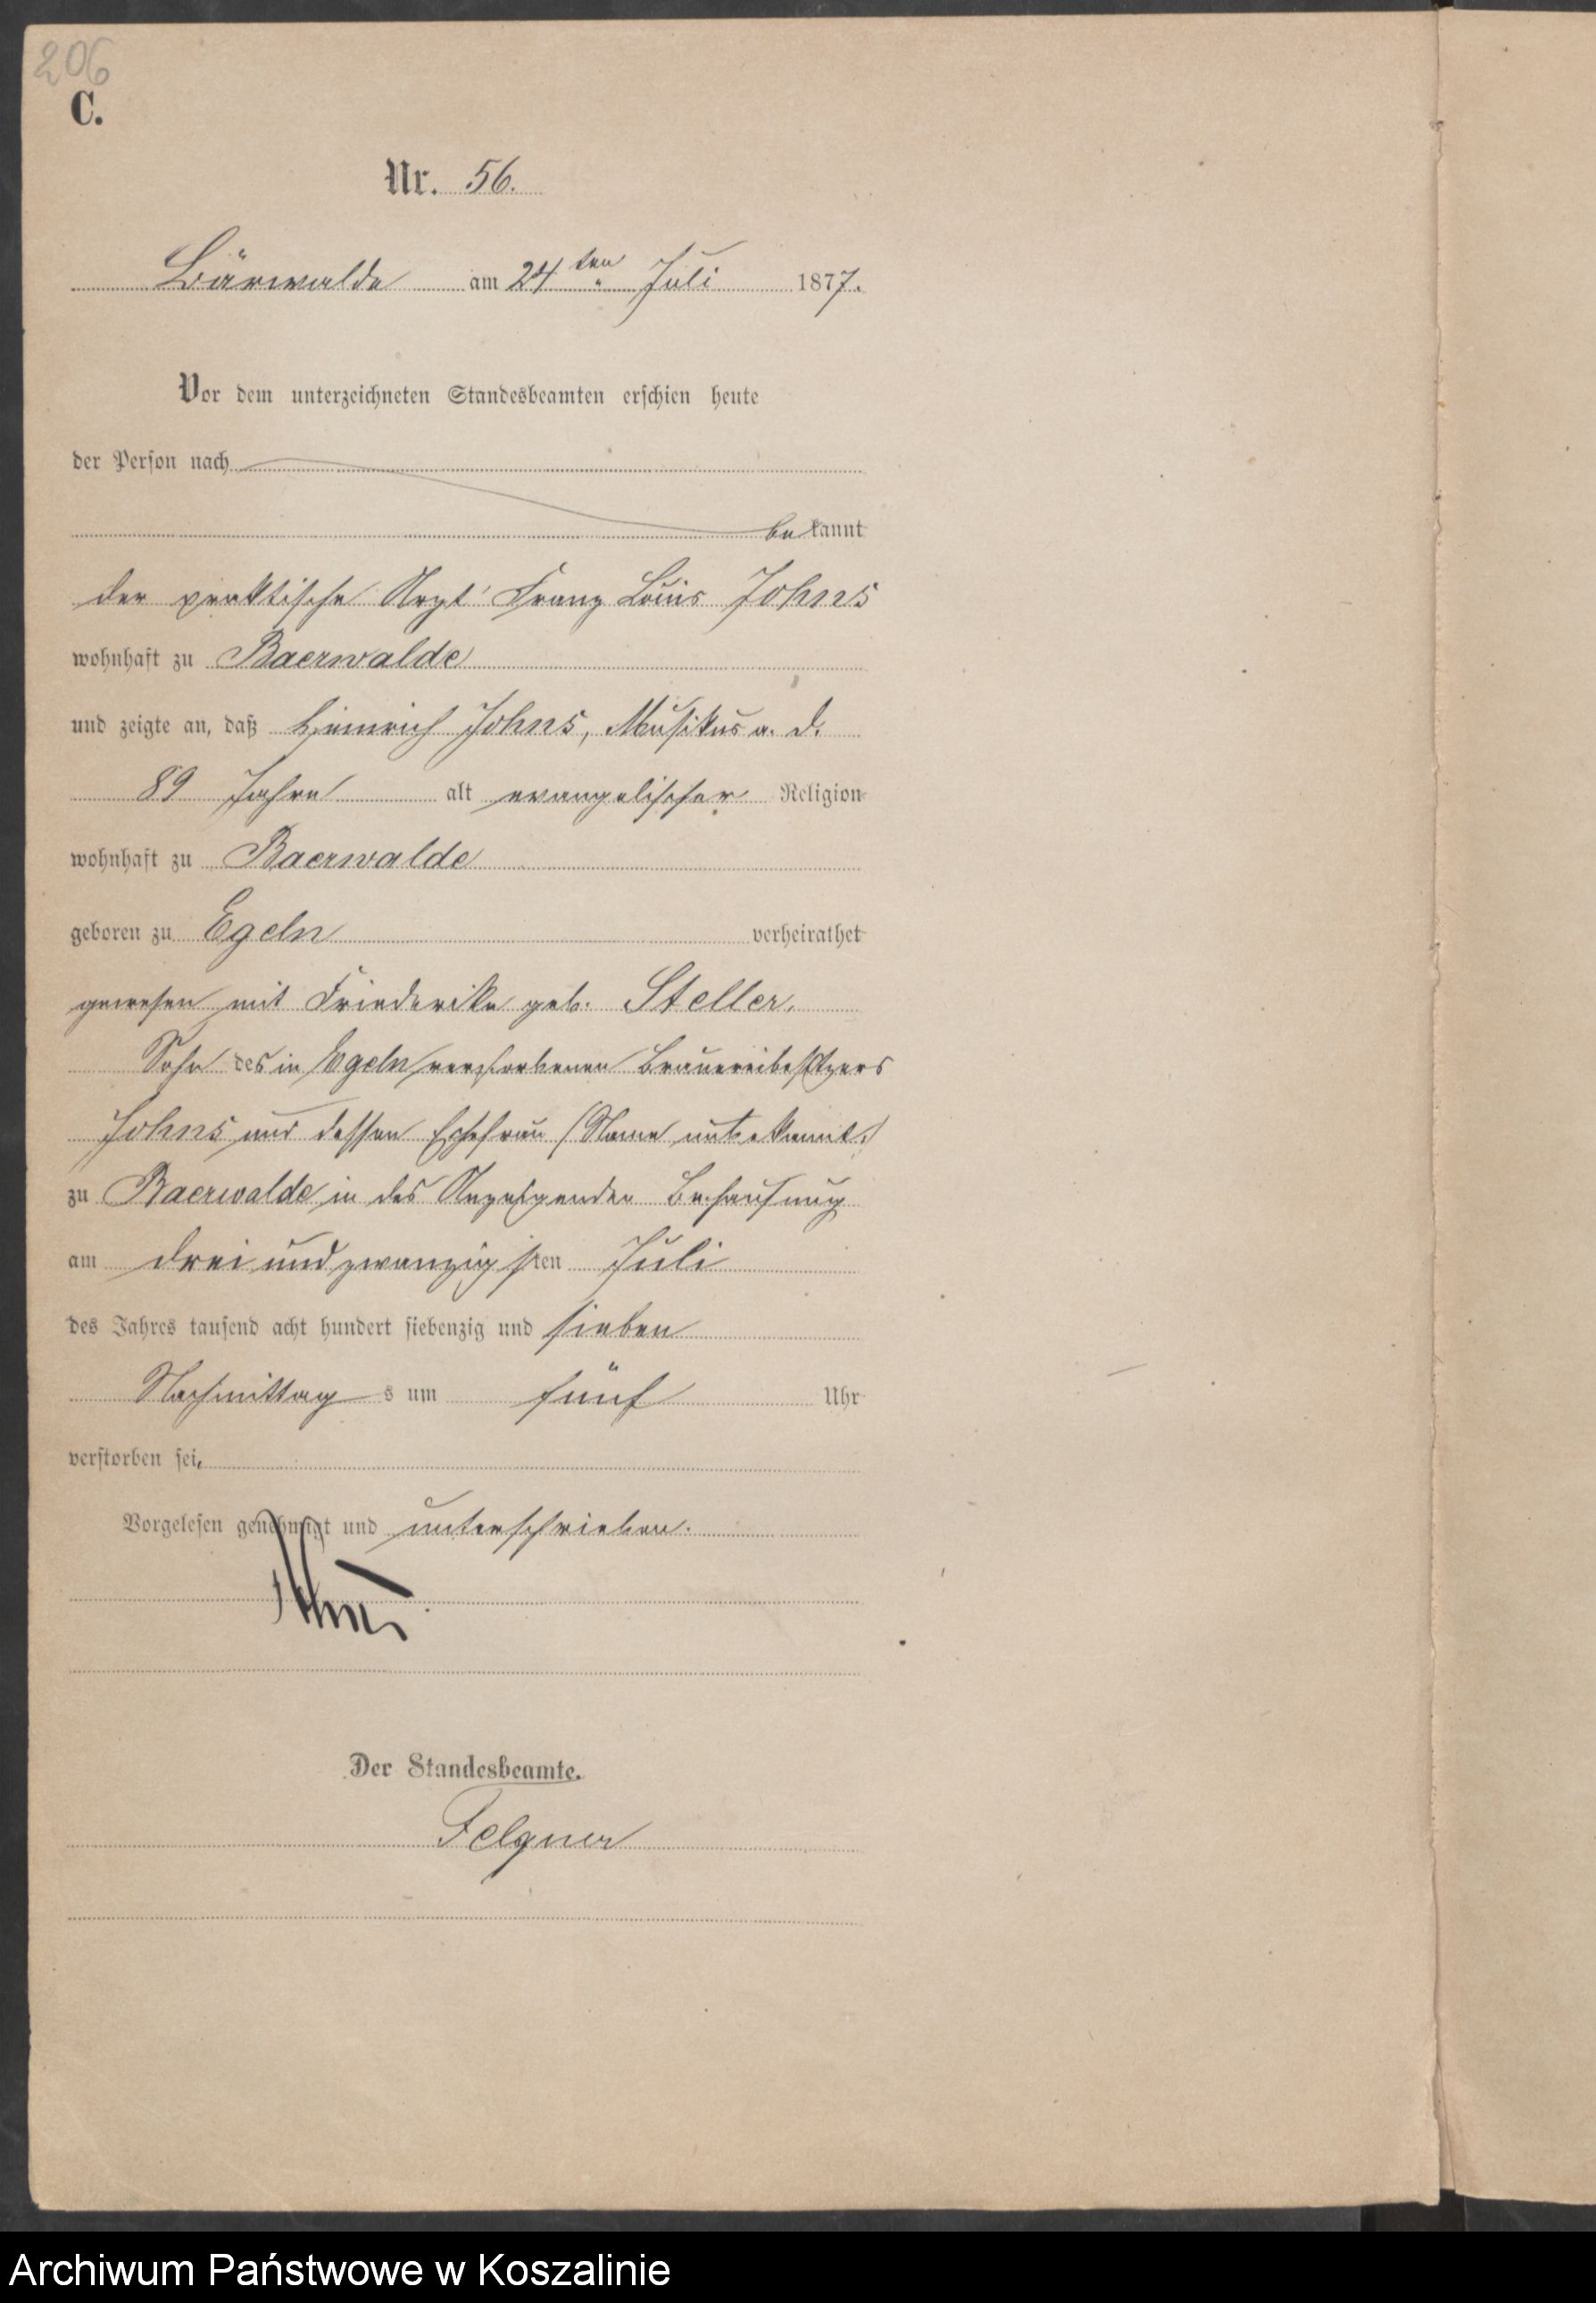 206
C.
Nr. 56.
Bärwalde am 24ten Juli 1877.
Vor dem unterzeichneten Standesbeamten erschien heute
der Person nach
bekannt
der praktische Arzt Franz Louis Johns
wohnhaft zu Baerwalde
und zeigte an, daß Heinrich Johns, Musikus a. D.
89 Jahre alt evangelischer Religion
wohnhaft zu Baerwalde
geboren zu Egeln verheirathet
gewesen mit Friederike geb. Steller,
Sohn des in Egeln verstorbenen Brauereibesitzers
Johns und dessen Ehefrau (Name unbekannt.)
zu Baerwalde in des Anzeigenden Behausung
am drei und zwanzigsten Juli
des Jahres tausend acht hundert siebenzig und sieben
Nachmittags um fünf Uhr
verstorben sei.
Vorgelesen genehmigt und unterschrieben.
Johns
Der Standesbeamte.
Felgner
Archiwum Państwowe w Koszalinie